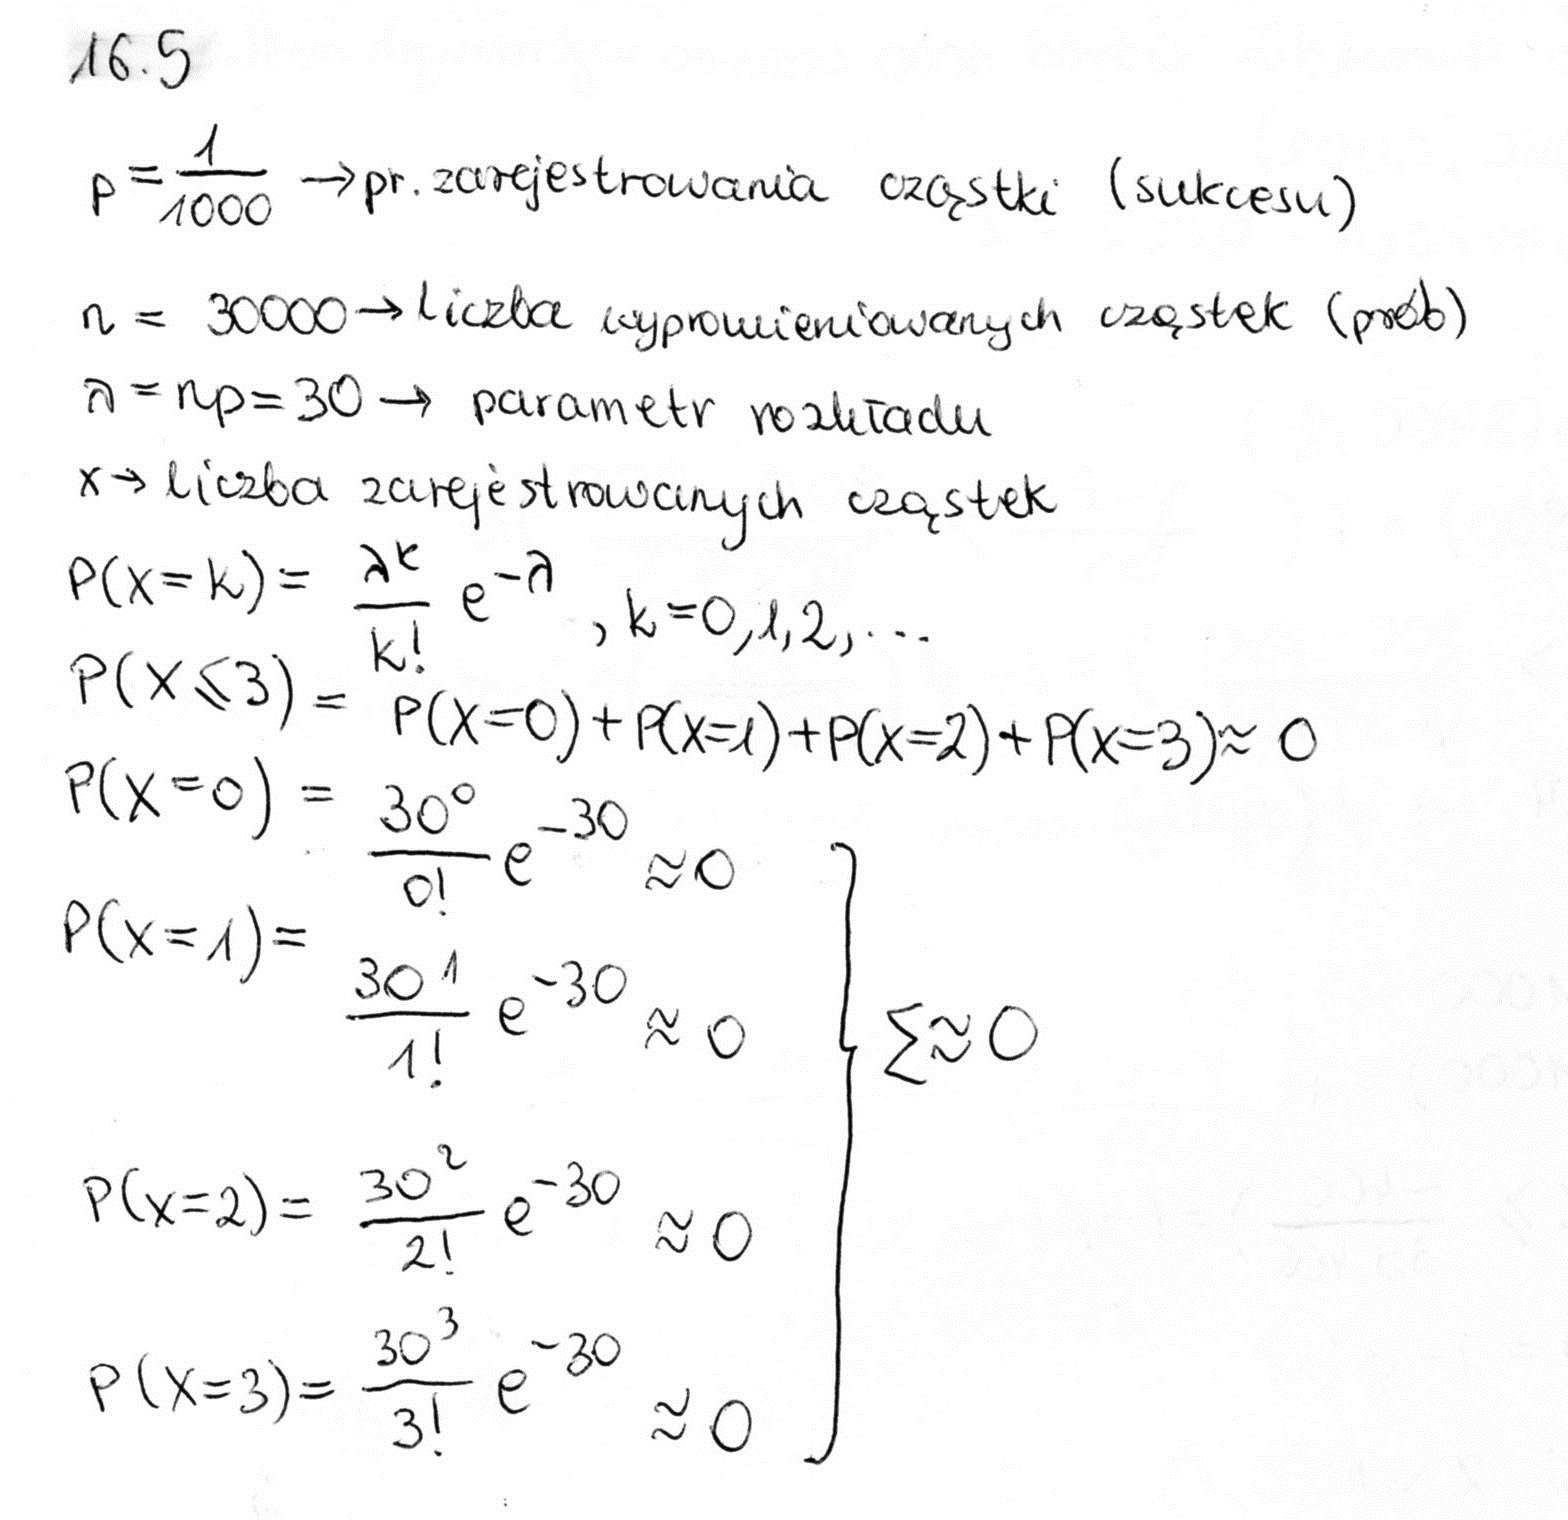 16.5
p = 1/1000 → pr. zarejestrowania cząstki (sukcesu)
n = 30000 → liczba wypromieniowanych cząstek (prób)
λ = np = 30 → parametr rozkładu
x → liczba zarejestrowanych cząstek
P(X=k) = λ^k/k! e^-λ , k=0,1,2,...
P(X⩽3) = P(X=0)+P(X=1)+P(X=2)+P(X=3) ≈ 0
P(X=0) = 30^0/0! e^-30 ≈ 0
P(X=1) = 30^1/1! e^-30 ≈ 0
} Σ ≈ 0
P(X=2) = 30^2/2! e^-30 ≈ 0
P(X=3) = 30^3/3! e^-30 ≈ 0